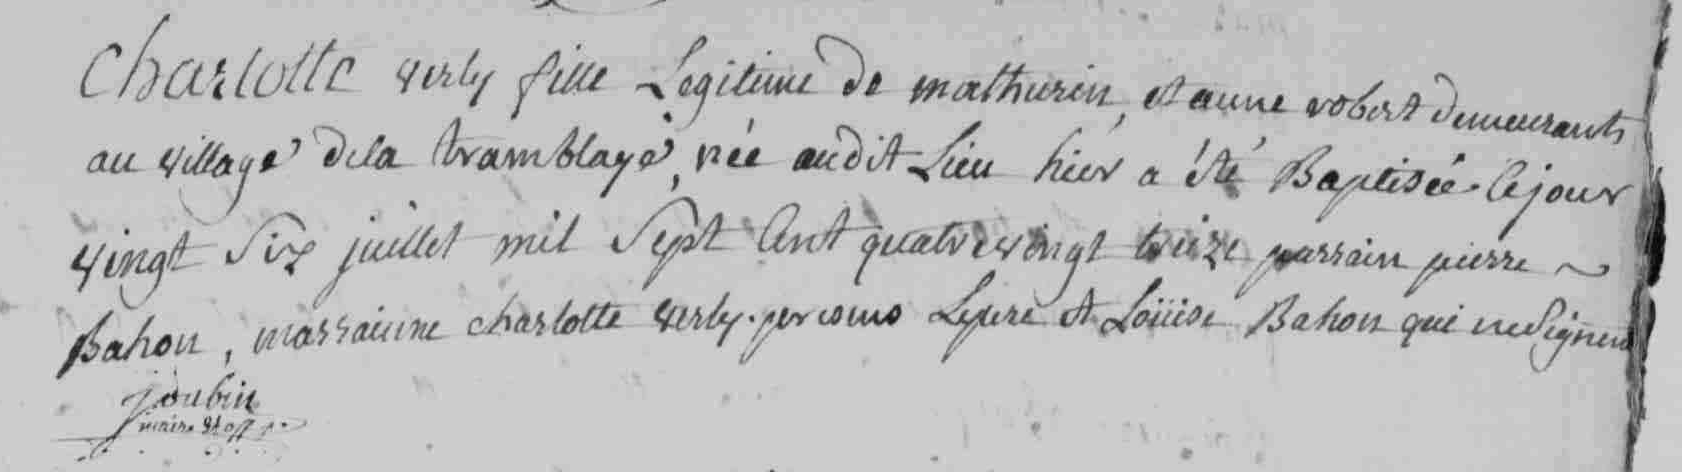 Charlotte verly fille Legitime de mathurin, et anne robert demeurants
au village dela tramblaye, née audit Lieu hier a été Baptisée Cejour
vingt Six juillet mil Sept Cent quatrevingt treize parrain pierre ~
Bahon, marrainne charlotte verly. presens Lepere et Loüise Bahon qui neSignent
joubin
maire et off p.